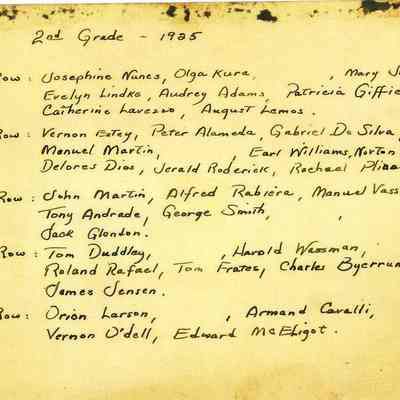 2nd Grade - 1935
Row: Josephine Nunes, Olga Kura, , Mary
Evelyn Lindke, Audrey Adams, Patricia
Catherine Lavezzo, August Lemos.
Row: Vernon Estey, Peter Alameda, Gabriel De Silva,
Manuel Martin, Earl Williams, Norton
Delores Dios, Jerald Roderick, Rachael
Row: John Martin, Alfred Rabiera, Manuel
Tony Andrade, George Smith, ,
Jack Glendon.
Row: Tom Duddley, , Harold Wassman,
Roland Rafael, Tom Frates, Charles
James Jensen.
Row: Orion Larson, , Armand Cavalli,
Vernon O'dell, Edward McEligot.